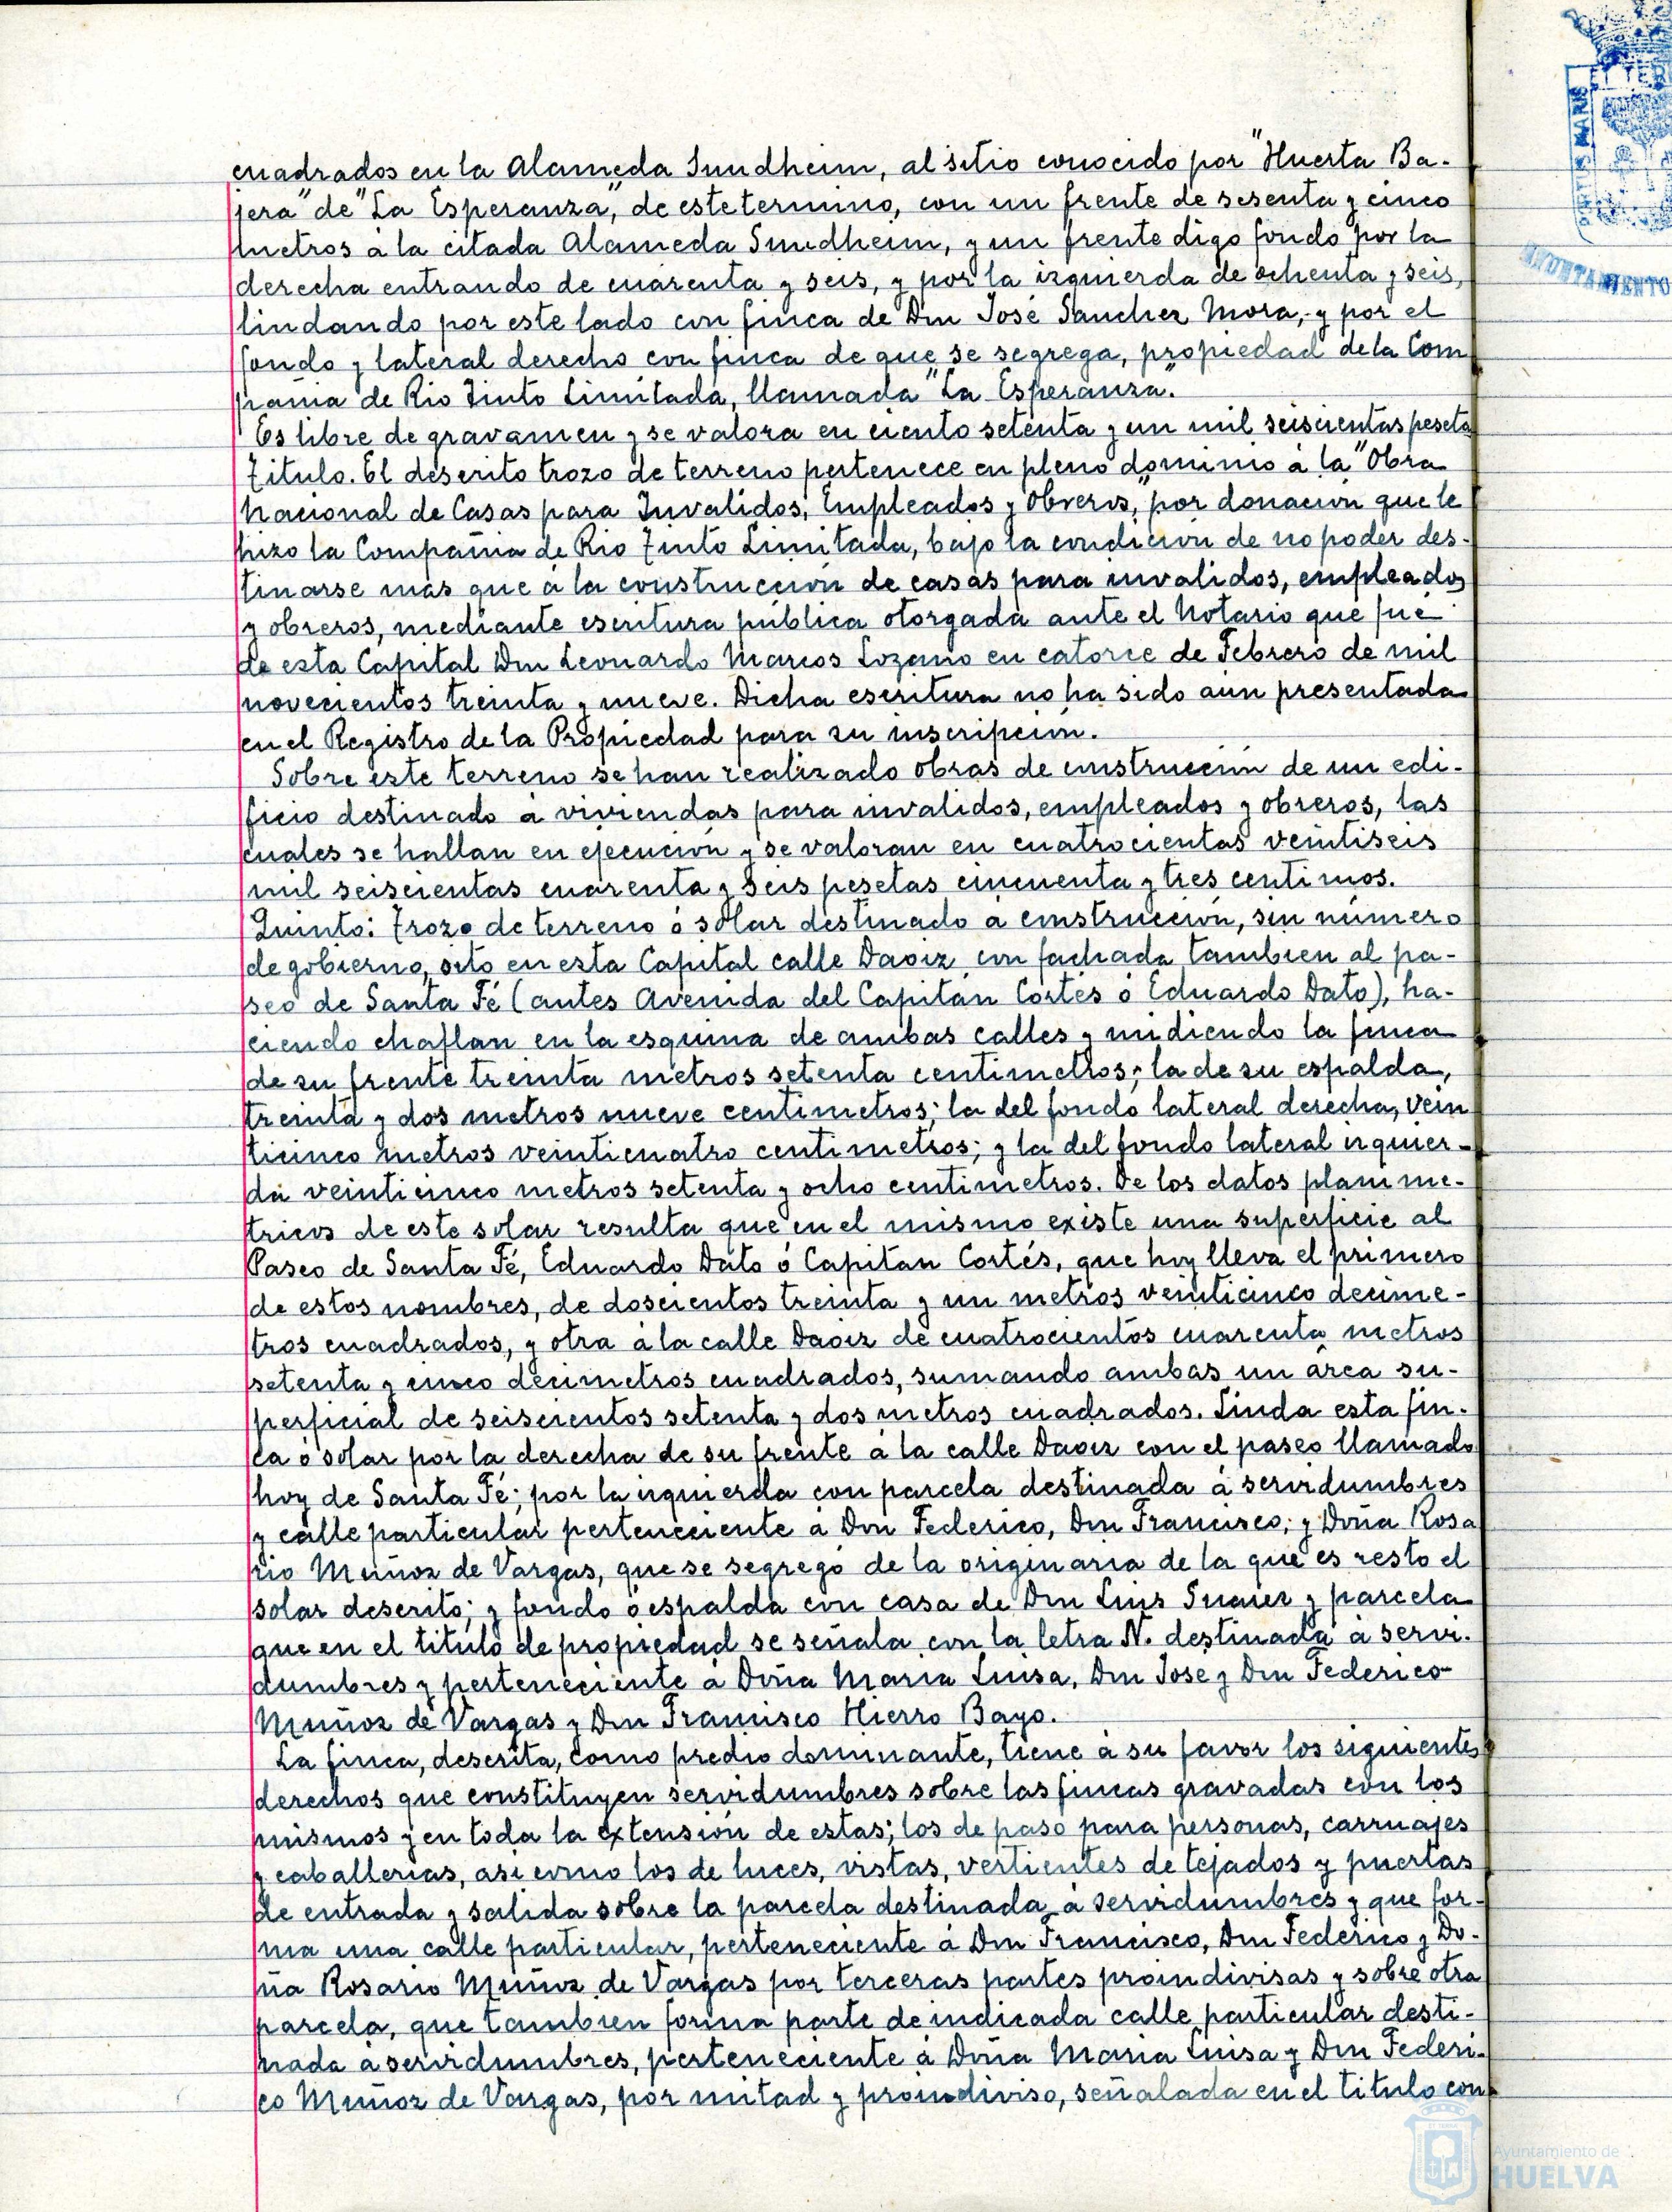 cuadrados en la Alameda Sundheim, al sitio conocido por "Huerta Ba-
jera" de "La Esperanza", de este termino, con un frente de sesenta y cinco
metros á la citada Alameda Sundheim, y un frente digo fondo por la
derecha entrando de cuarenta y seis, y por la izquierda de ochenta y seis,
lindando por este lado con finca de Don José Sanchez Mora, y por el
fondo y lateral derecho con finca de que se segrega, propiedad de la Com
pañia de Rio Tinto Limitada, llamada "La Esperanza".
Es libre de gravamen y se valora en ciento setenta y un mil seiscientas peseta
Titulo. El descrito trozo de terreno pertenece en pleno dominio á la "Obra
Nacional de Casas para Invalidos, Empleados y Obreros", por donación que le
hizo la Compañia de Rio Tinto Limitada, bajo la condición de no poder des-
tinarse más que á la construcción de casas para invalidos, empleados
y obreros, mediante escritura pública otorgada ante el Notario que fué
de esta Capital Don Leonardo Marcos Lozano en catorce de Febrero de mil
novecientos treinta y nueve. Dicha escritura no ha sido aún presentada
en el Registro de la Propiedad para su inscripción.
Sobre este terreno se han realizado obras de construcción de un edi-
ficio destinado á viviendas para invalidos, empleados y obreros, las
cuales se hallan en ejecución y se valoran en cuatrocientas veintiseis
mil seiscientas cuarenta y seis pesetas cincuenta y tres centimos.
Quinto: Trozo de terreno ó solar destinado á construcción, sin número
de gobierno, sito en esta Capital calle Daoiz con fachada tambien al pa-
seo de Santa Fé (antes Avenida del Capitán Cortés ó Eduardo Dato), ha-
ciendo chaflan en la esquina de ambas calles y midiendo la finca
de su frente treinta metros setenta centimetros; la de su espalda,
treinta y dos metros nueve centimetros; la del fondo lateral derecha, vein
ticinco metros veinticuatro centimetros; y la del fondo lateral izquier-
da veinticinco metros setenta y ocho centimetros. De los datos planime-
tricos de este solar resulta que en el mismo existe una superficie al
Paseo de Santa Fé, Eduardo Dato ó Capitan Cortés, que hoy lleva el primero
de estos nombres, de doscientos treinta y un metros veinticinco decime-
tros cuadrados, y otra á la calle Daoiz de cuatrocientos cuarenta metros
setenta y cinco decimetros cuadrados, sumando ambas un área su-
perficial de seiscientos setenta y dos metros cuadrados. Linda esta fin-
ca ó solar por la derecha de su frente á la calle Daoiz con el paseo llamado
hoy de Santa Fé; por la izquierda con parcela destinada á servidumbres
y calle particular perteneciente á Don Federico, Don Francisco, y Doña Rosa
rio Muñoz de Vargas, que se segregó de la originaria de la que es resto el
solar descrito; y fondo ó espalda con casa de Don Luis Suarez y parcela
que en el titulo de propiedad se señala con la letra N. destinada á servi-
dumbres y perteneciente á Doña Maria Luisa, Don Jose y Don Federico
Muñoz de Vargas y Don Francisco Hierro Bayo.
La finca, descrita, como predio dominante, tiene á su favor los siguientes
derechos que constituyen servidumbres sobre las fincas gravadas con los
mismos y en toda la extensión de estas; los de paso para personas, carruajes
y caballerias, asi como los de luces, vistas, vertientes de tejados y puertas
de entrada y salida sobre la parcela destinada á servidumbres y que for-
ma una calle particular, perteneciente á Don Francisco, Don Federico y Do-
ña Rosario Muñoz de Vargas por terceras partes proindivisas y sobre otra
parcela, que tambien forma parte de indicada calle particular desti-
nada á servidumbres, perteneciente á Doña Maria Luisa y Don Federi-
co Muñoz de Vargas, por mitad y proindiviso, señalada en el titulo con
PORTUS MARIS
AYUNTAMIENTO
Ayuntamiento de
HUELVA